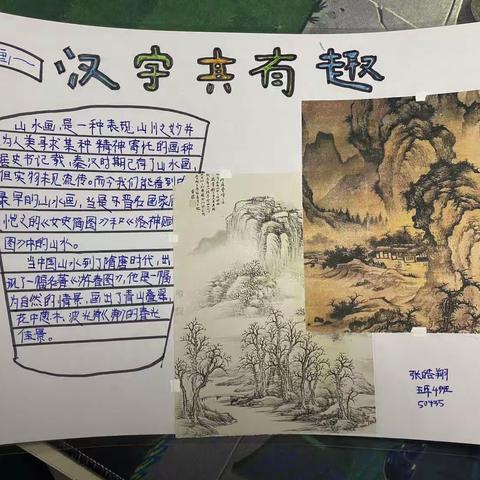 汉字真有趣
山水画,是一种表现,山川之妙并
为人类寻求某种精神寄托的画种
据史书记载,秦汉时期已有了山水画,
但实物未见流传。而今我们能看到
最早的山水画,当是东晋名画家顾
恺之的《女史简图》和《洛神赋
图》中的山水。
当中国山水到了隋唐时代,出
现了一幅名著《游春图》,他是一幅
为自然的情景,画出了青山叠翠,
花中
佳景。
张皓翔
五年4班
50435